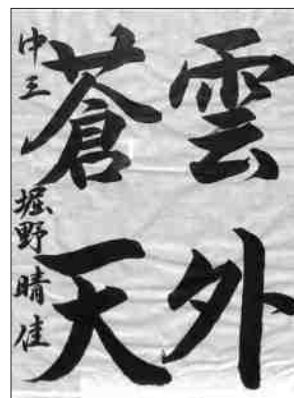 雲外
蒼天
中三 堀野晴佳